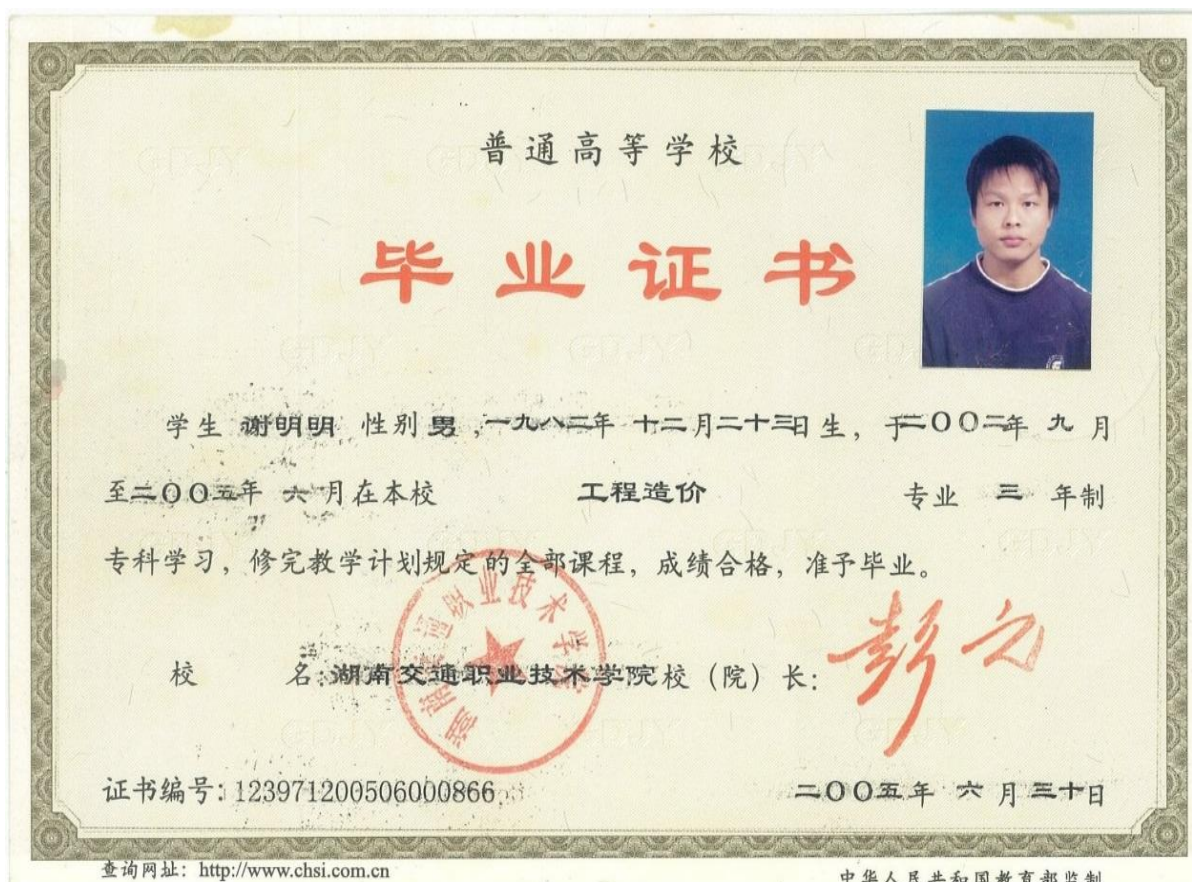 普通高等学校
毕业证书
学生 谢明明 性别 男，一九八二年 十二月二十三日生，于二〇〇二年 九 月
至二〇〇五年 六 月在本校 工程造价 专业 三 年制
专科学习，修完教学计划规定的全部课程，成绩合格，准予毕业。
校 名：湖南交通职业技术学院 校（院）长：
湖南交通职业技术学院
证书编号：123971200506000866
二〇〇五年 六 月三十日
查询网址：http://www.chsi.com.cn
中华人民共和国教育部监制